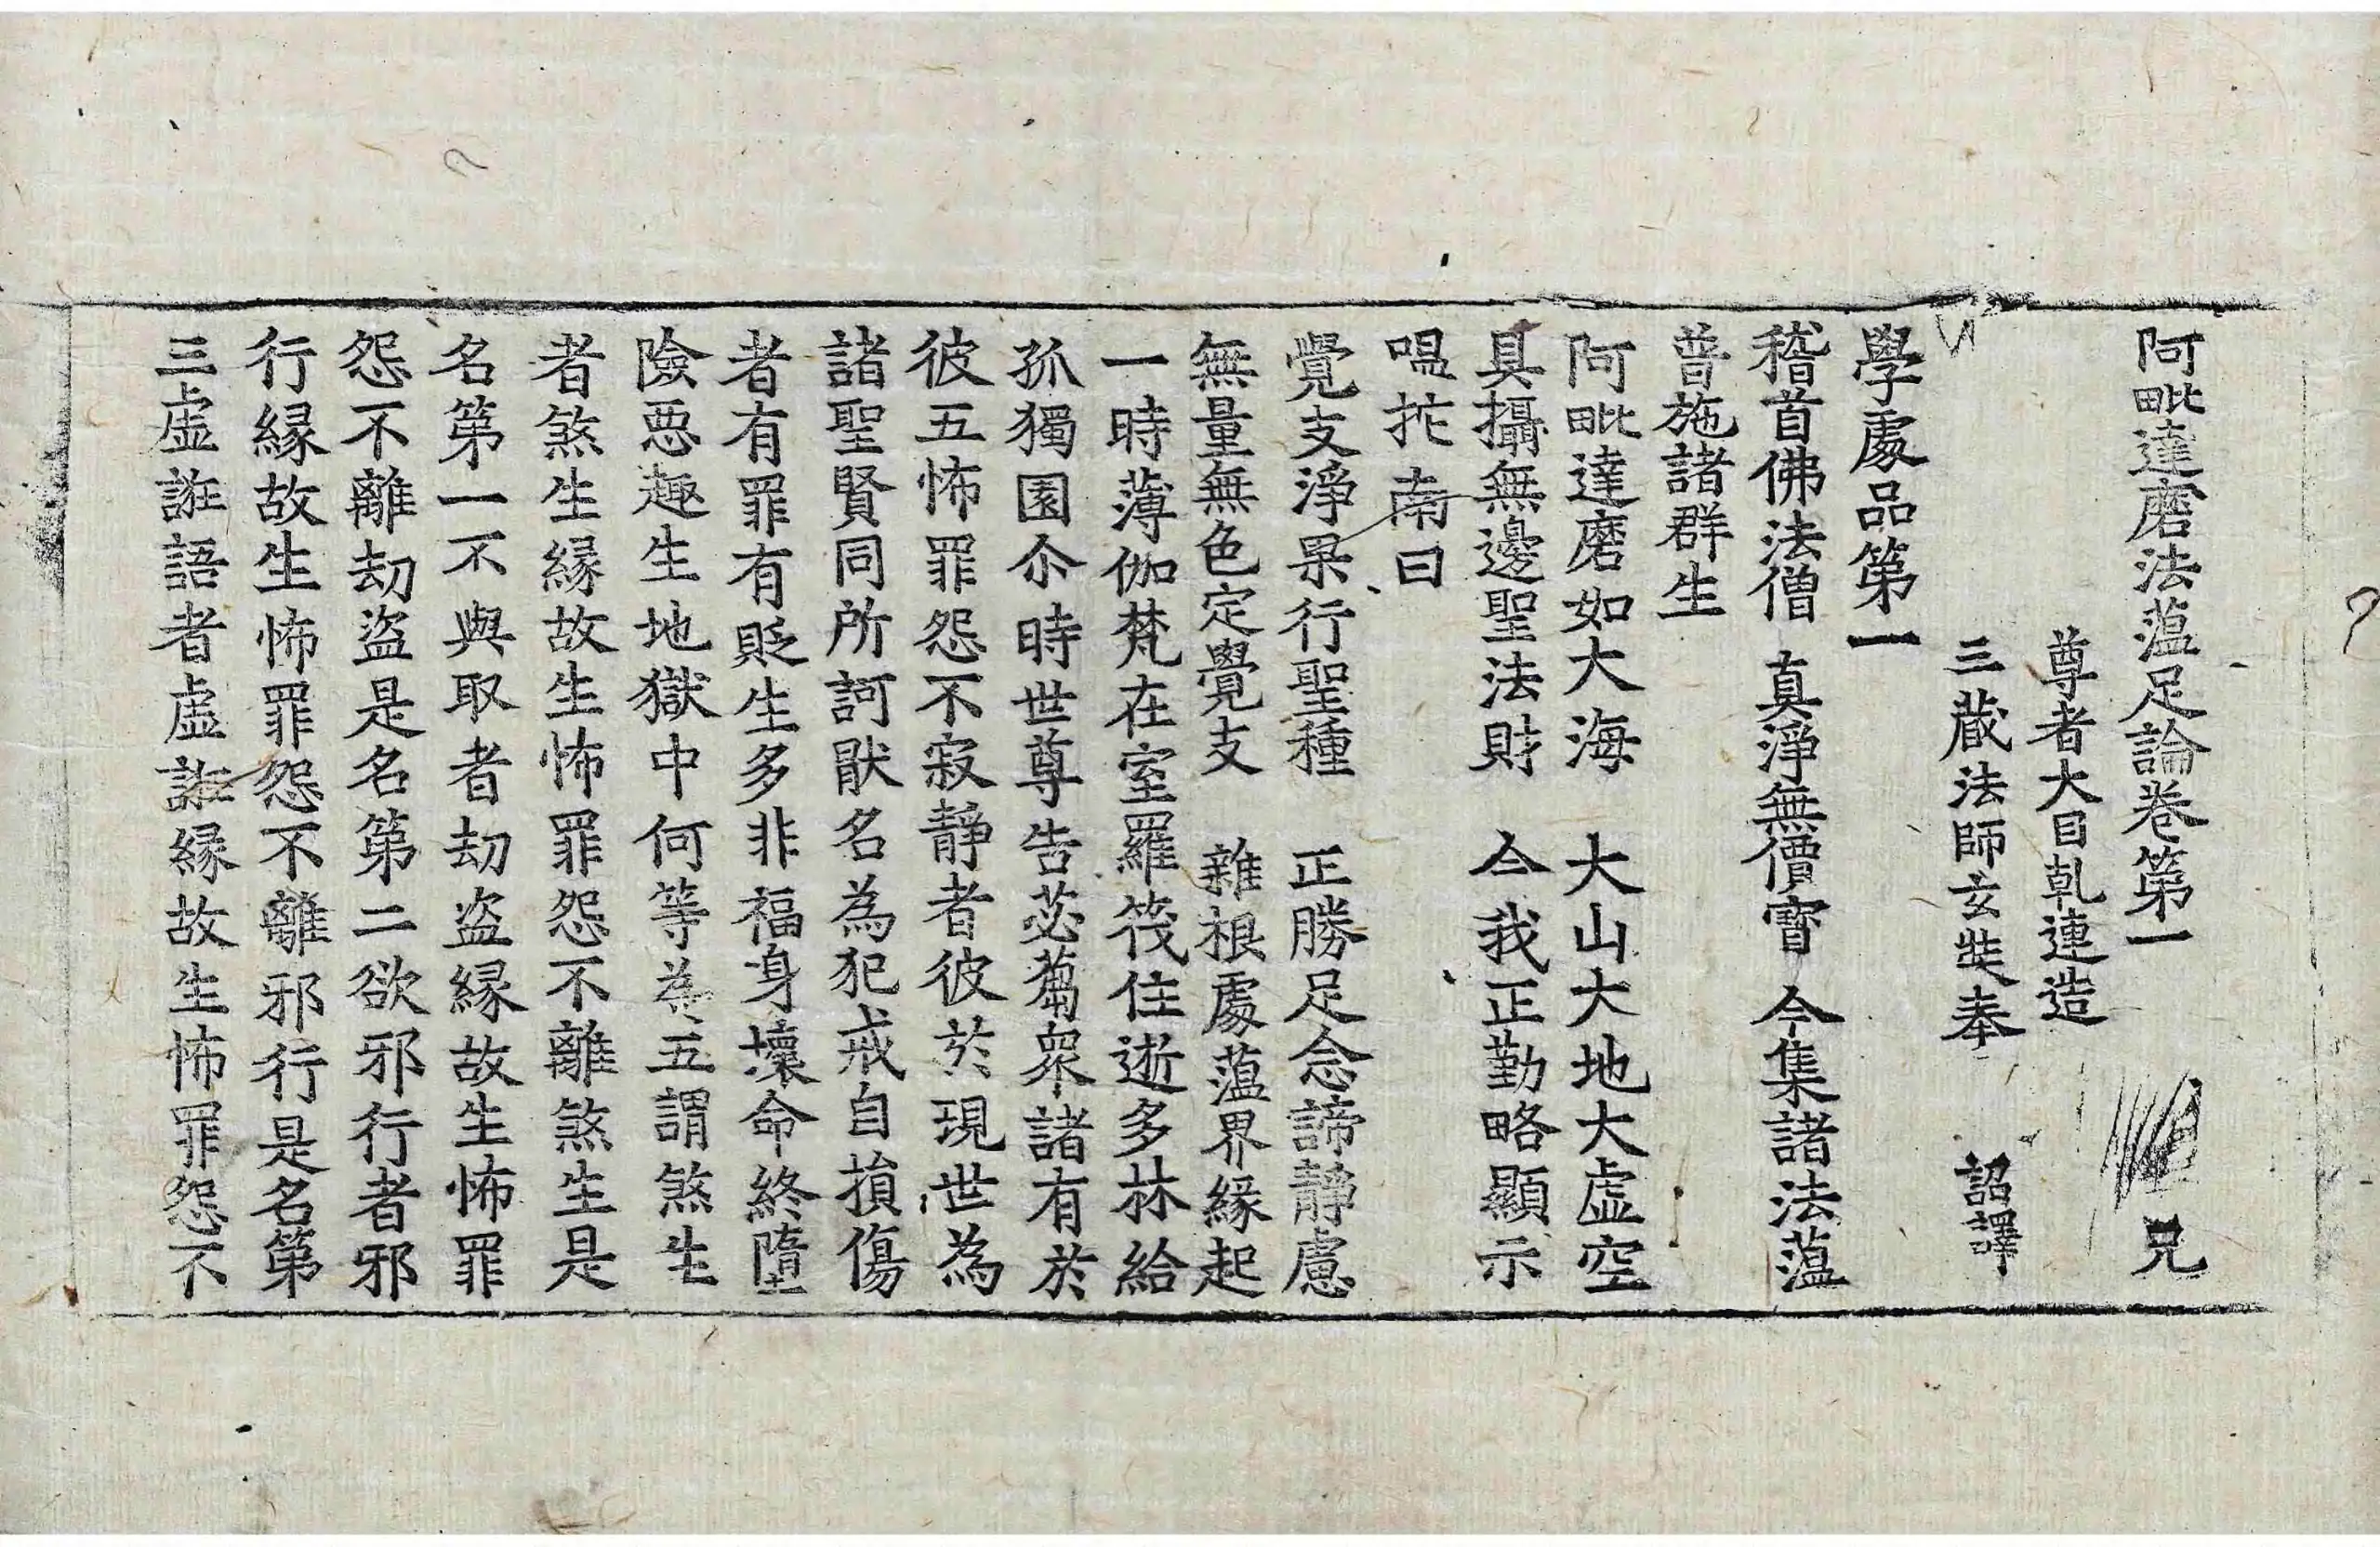 阿毗達磨法蘊足論卷第一 兄
尊者大目乹連造
三藏法師玄奘奉 詔譯
學處品第一
稽首佛法僧 真淨無價寶 今集諸法蘊
普施諸群生
阿毗達磨如大海 大山大地大虛空
具攝無邊聖法財 今我正勤略顯示
嗢拕南曰
覺支淨果行聖種 正勝足念諦靜慮
無量無色定覺支 雜根處蘊界緣起
一時薄伽梵在室羅筏住逝多林給
孤獨園尒時世尊告苾蒭眾諸有於
彼五怖罪怨不寂靜者彼於現世為
諸聖賢同所訶猒名為犯戒自損傷
者有罪有貶生多非福身壞命終墮
險惡趣生地獄中何等為五謂煞生
者煞生緣故生怖罪怨不離煞生是
名第一不與取者劫盜緣故生怖罪
怨不離劫盜是名第二欲邪行者邪
行緣故生怖罪怨不離邪行是名第
三虛誑語者虛誑緣故生怖罪怨不